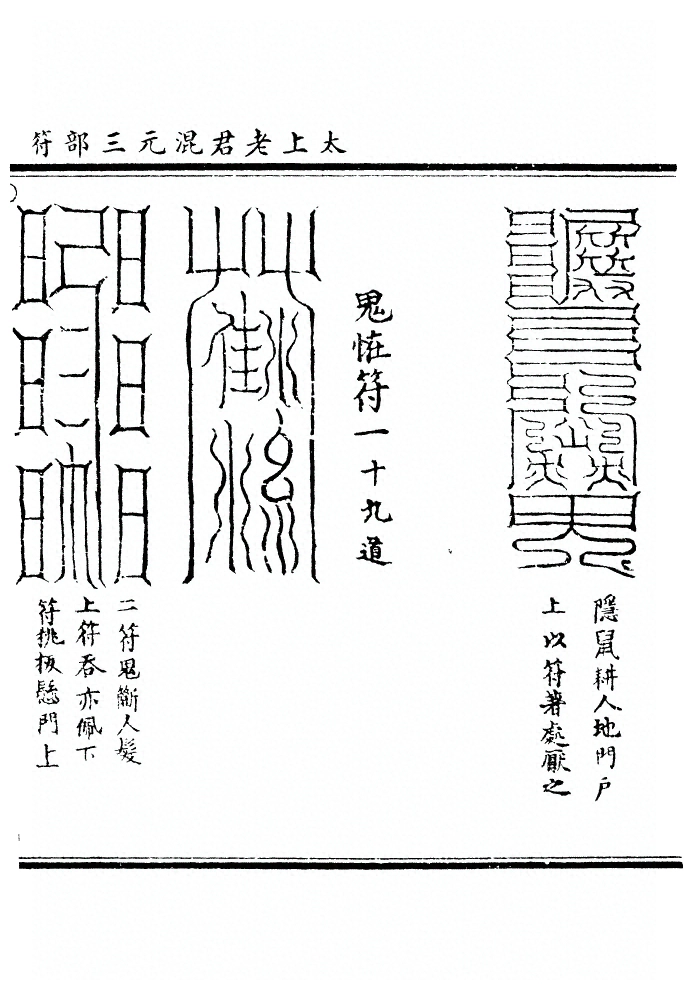 太上老君混元三部符
隱鼠耕人地門戶
上以符著處厭之
鬼恠符一十九道
二符鬼斷人髮
上符吞亦佩下
符桃板懸門上